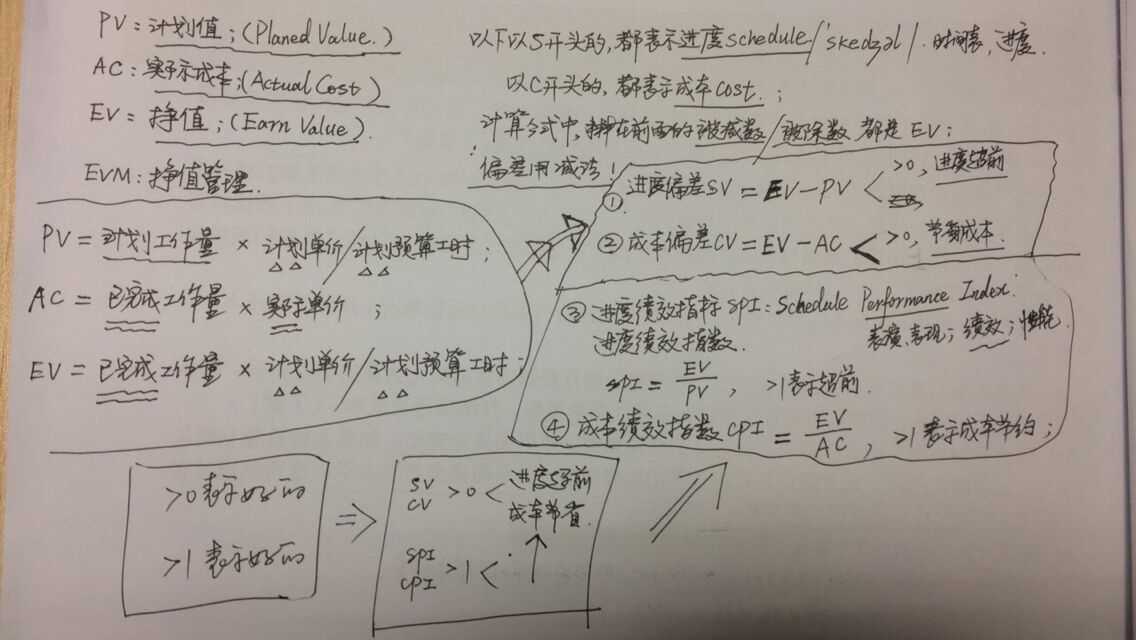 PV:计划值;(Planed Value.)
AC:实际成本;(Actual Cost)
EV:挣值;(Earn Value).
EVM:挣值管理.
以下以S开头的,都表示进度schedule/'skedʒəl/.时间表,进度.
以C开头的,都表示成本cost.;
计算公式中,排在前面的被减数/被除数都是EV;
偏差用减法!
PV=计划工作量×计划单价/计划预算工时;
AC=已完成工作量×实际单价;
EV=已完成工作量×计划单价/计划预算工时;
①进度偏差SV=EV-PV
>0,进度超前
②成本偏差CV=EV-AC
>0,节省成本.
③进度绩效指标SPI:Schedule Performance Index.
进度绩效指数.
表演、表现;绩效;性能.
SPI=EV/PV,>1表示超前.
④成本绩效指数CPI=EV/AC,>1表示成本节约;
>0表示好的
>1表示好的
⇒
SV
CV
>0<
进度超前
成本节省.
SPI
CPI
>1<